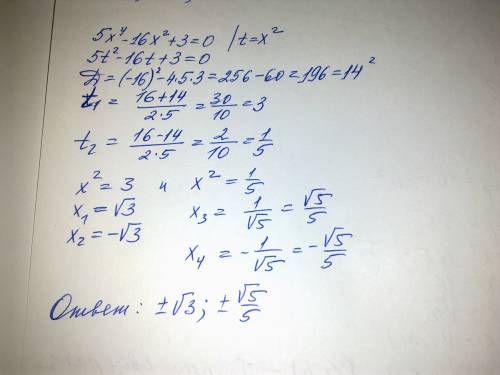 5x⁴-16x²+3=0 /t=x²
5t²-16t+3=0
D=(-16)²-4·5·3=256-60=196=14²
t₁ = (16+14)/(2·5) = 30/10 = 3
t₂ = (16-14)/(2·5) = 2/10 = 1/5
x² = 3 и x² = 1/5
x₁ = √3 x₃ = 1/√5 = √5/5
x₂ = -√3
x₄ = -1/√5 = -√5/5
Ответ: ±√3; ±√5/5